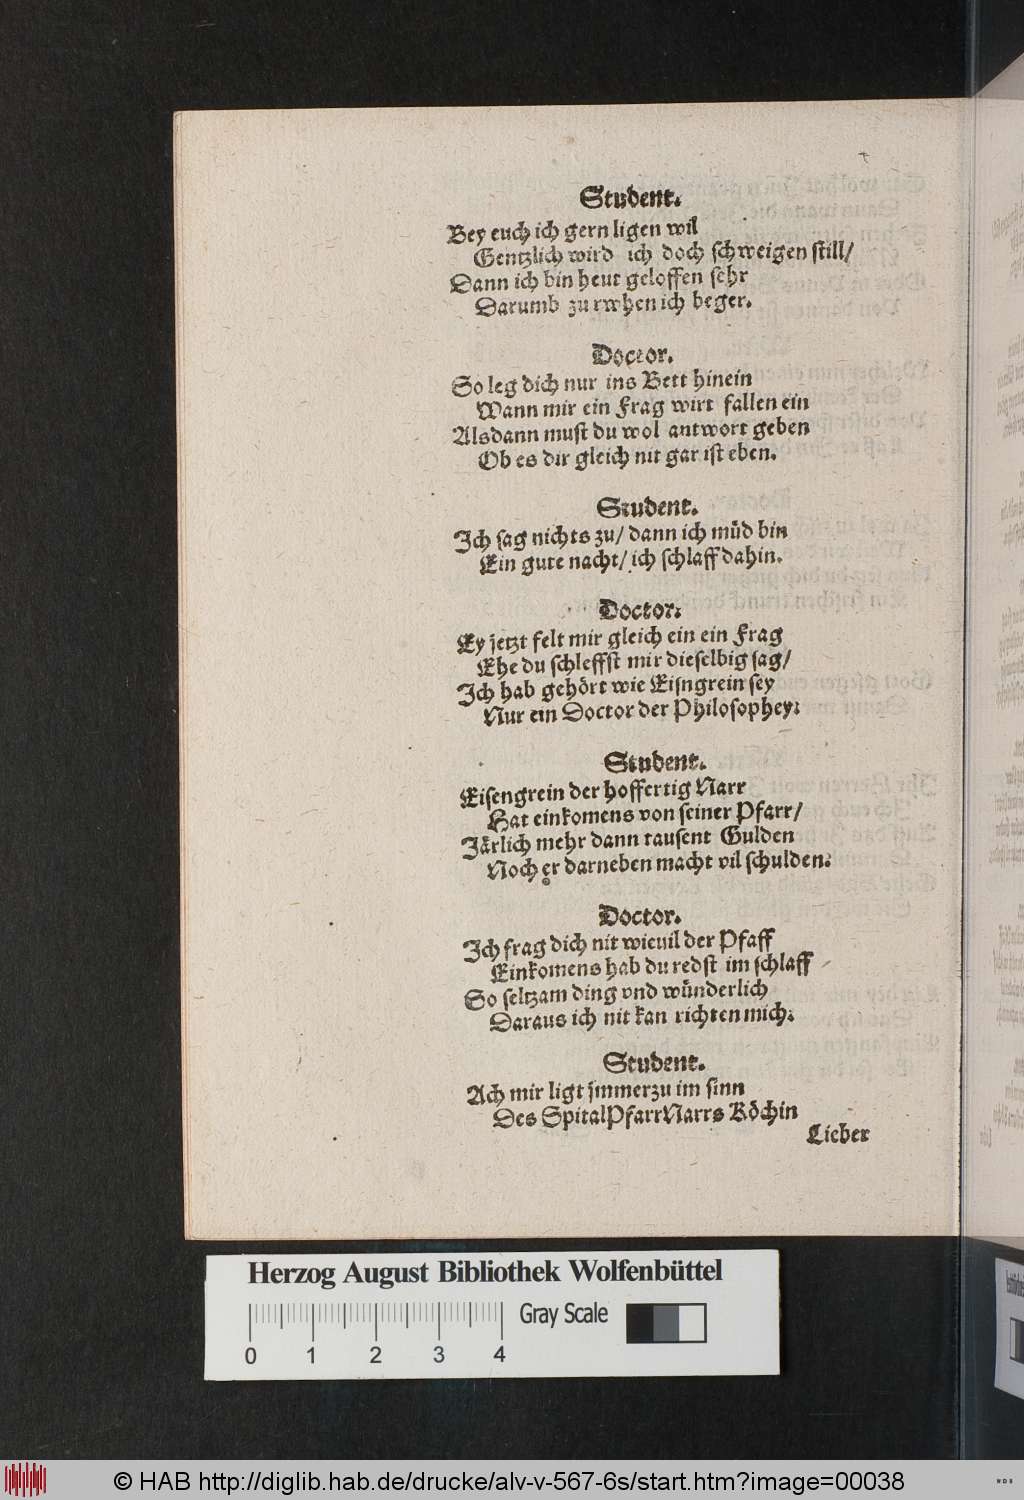 Student.
Bey euch ich gern ligen wil
Gentzlich wird ich doch schweigen still/
Dann ich bin heut geloffen sehr
Darumb zu rwhen ich beger.
Doctor.
So leg dich nur ins Bett hinein
Wann mir ein Frag wirt fallen ein
Alsdann must du wol antwort geben
Ob es dir gleich nit gar ist eben.
Student.
Ich sag nichts zu/ dann ich müd bin
Ein gute nacht/ ich schlaff dahin.
Doctor:
Ey jetzt felt mir gleich ein ein Frag
Ehe du schleffst mir dieselbig sag/
Ich hab gehört wie Eisngrein sey
Nur ein Doctor der Philosophey:
Student.
Eisengrein der hoffertig Narr
Hat einkomens von seiner Pfarr/
Järlich mehr dann tausent Gulden
Noch er darneben macht vil schulden:
Doctor.
Ich frag dich nit wieuil der Pfaff
Einkomens hab du redst im schlaff
So seltzam ding vnd wünderlich
Daraus ich nit kan richten mich:
Student.
Ach mir ligt jmmerzu im sinn
Des SpitalPfarrNarrs Köchin
Lieber
Herzog August Bibliothek Wolfenbüttel
Gray Scale
0 1 2 3 4
© HAB http://diglib.hab.de/drucke/alv-v-567-6s/start.htm?image=00038